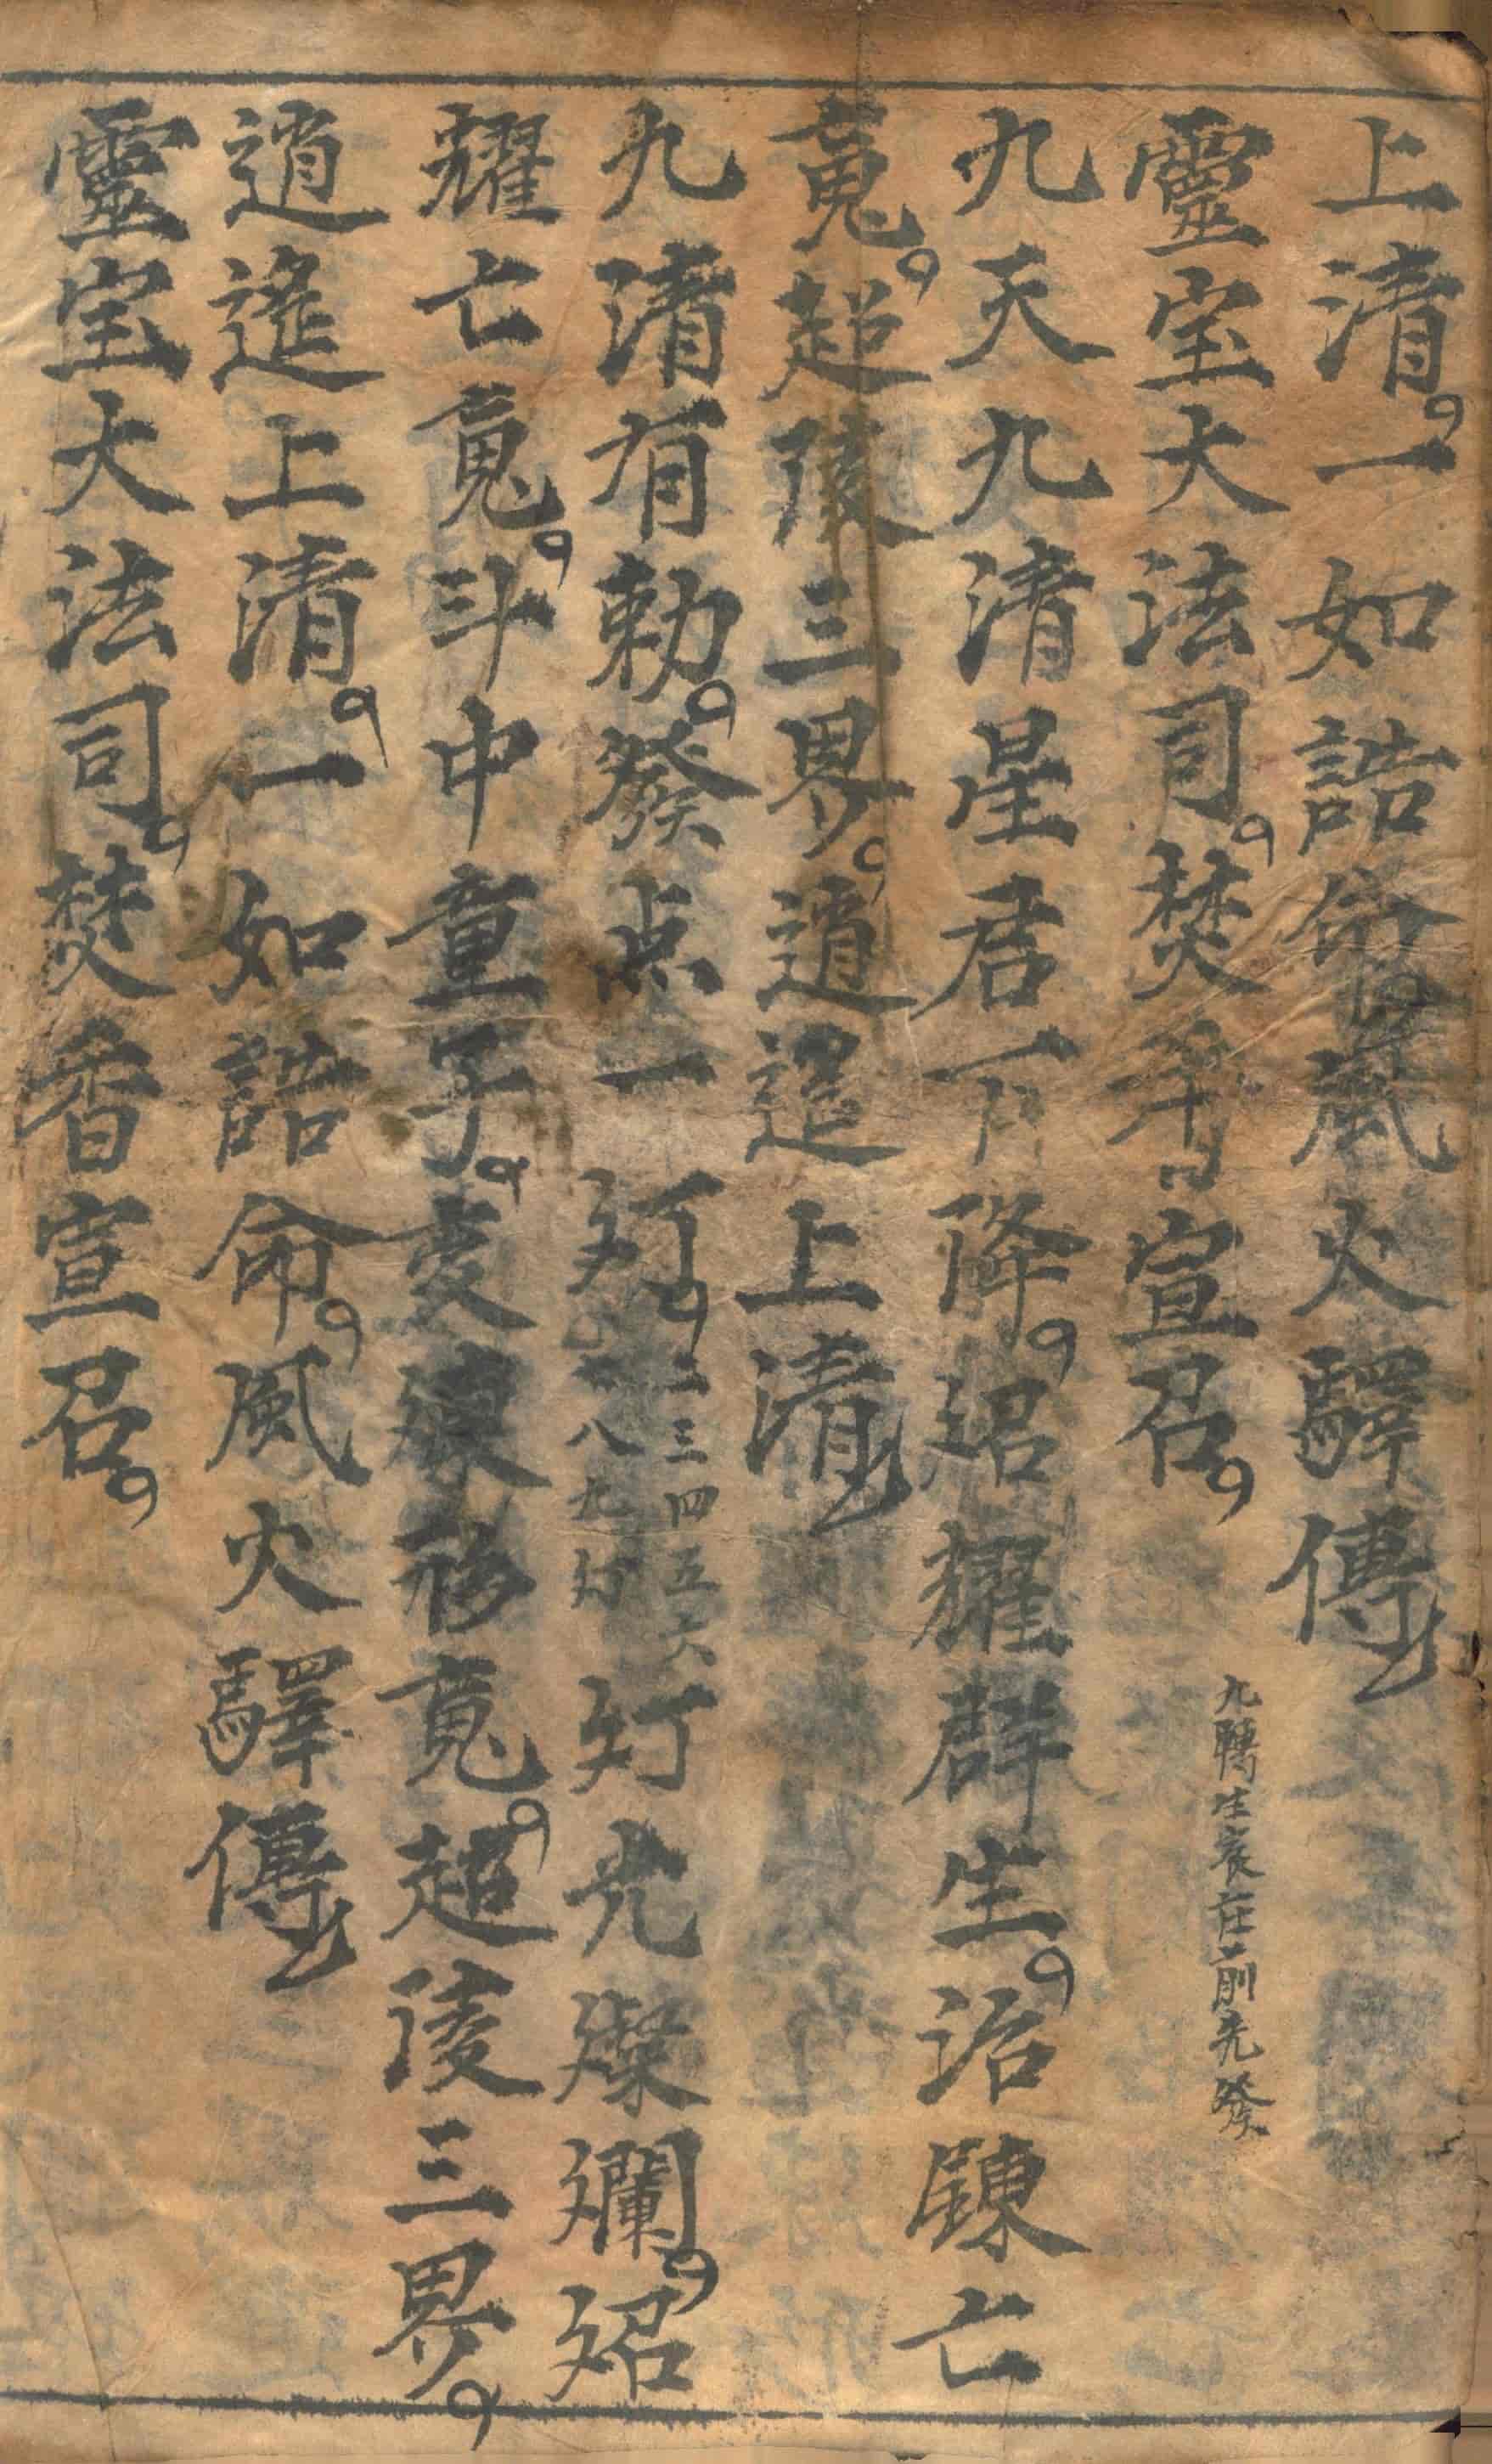 上清一如誥命風火驛傳
靈宝大法司焚香宣召
九轉生衰在前先發
九天九清星君下降炤耀群生治鍊亡
䰟超陵三界逍遥上清
九清有勅發点一灯二三四五六
七八九灯
灯光燦爛炤
耀亡䰟斗中童子变煉形䰟超陵三界
逍遥上清一如誥命風火驛傳
靈宝大法司焚香宣召